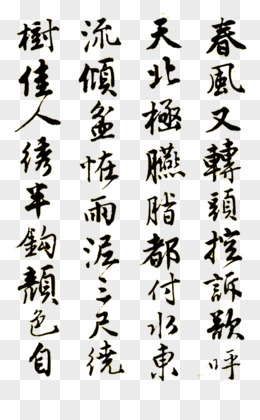 春風又轉頭控訴歌呼
天北極臙脂都付水東
流傾盆恠雨泥三尺繞
樹佳人綉半鈎顏色自